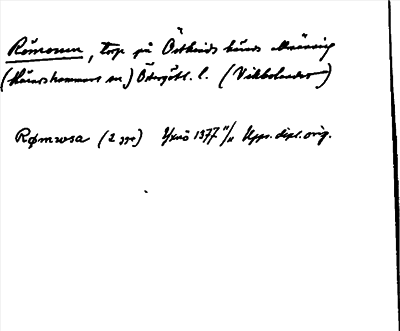 Römossen, torp på Östkinds härads allmänning
(Häradshammars sn.) Östergötl. l. (Vikbolandet)
Rømwsa (2 ggr) Yxnö 1377 11/11 Upps. dipl. orig.